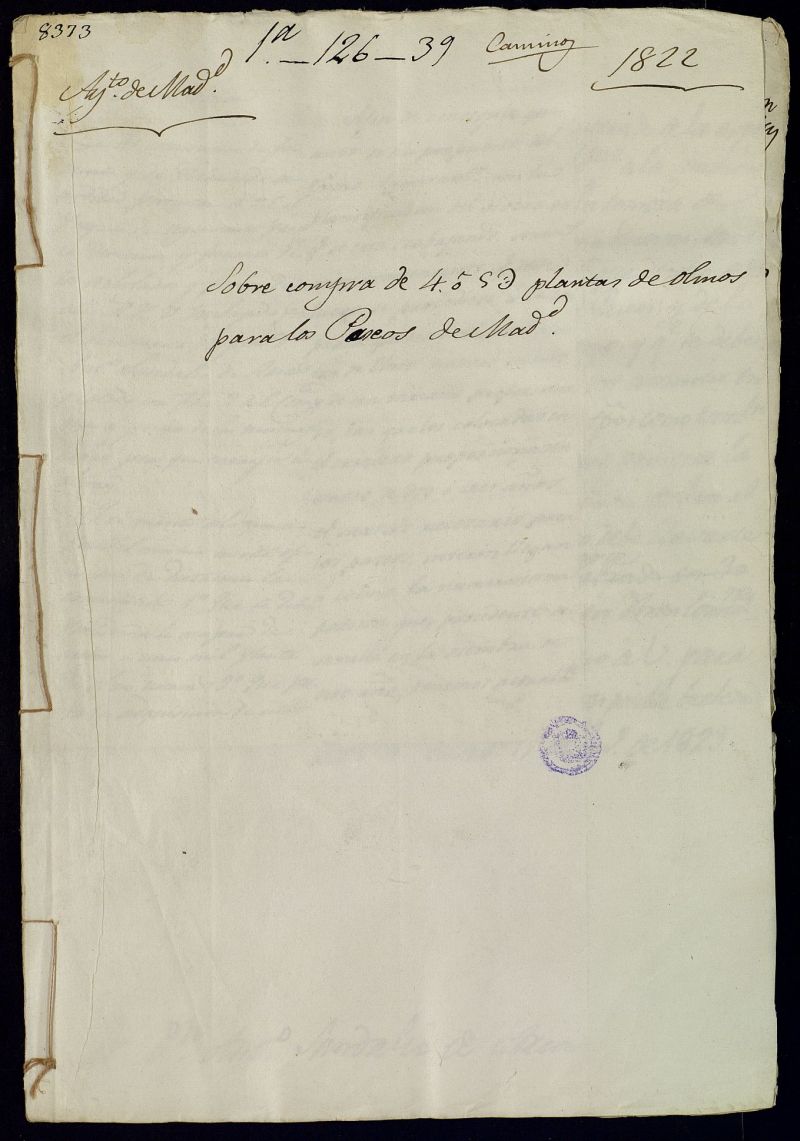 8373
1ª — 126 — 39
Caminos
1822
Ayto. de Madd.
Sobre compra de 4. ó 5 D plantas de olmos
para los Paseos de Madd.